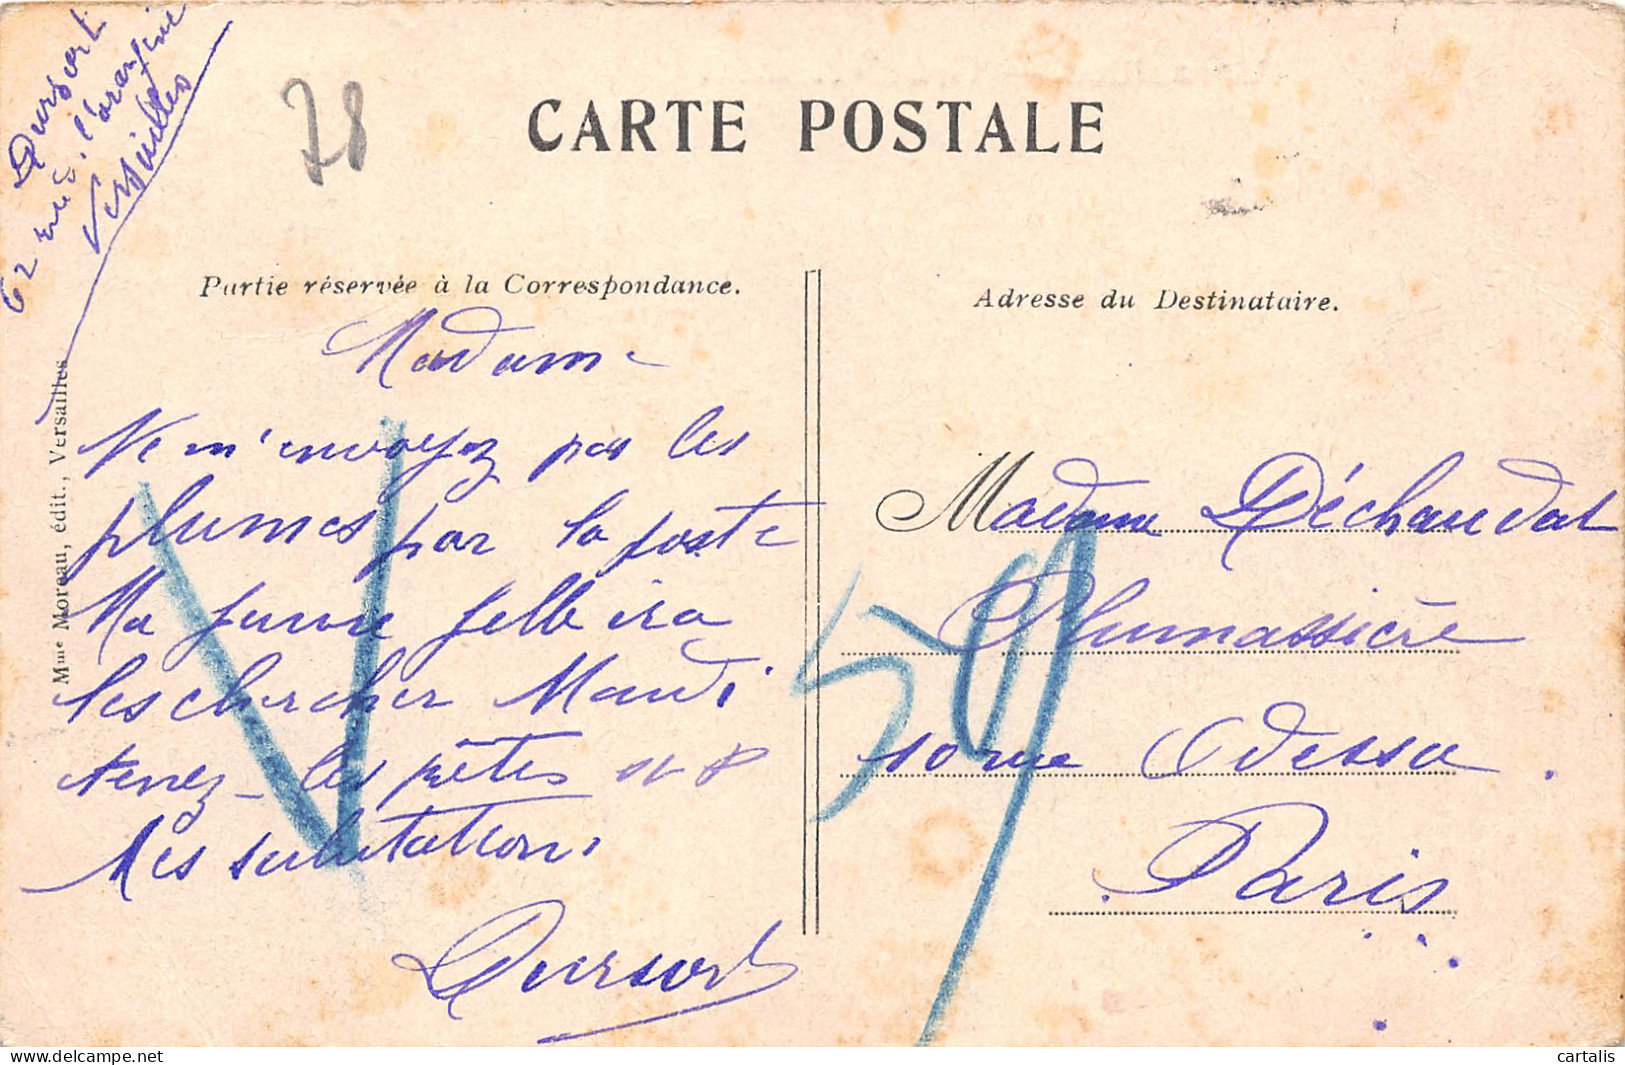 Dursort
62 rue de l'orangerie
Versailles
78
CARTE POSTALE
Partie réservée à la Correspondance.
Adresse du Destinataire.
Mme Moreau, édit., Versailles
Madame
Ne m'envoyez pas les
plumes par la poste
Ma jeune fille ira
les chercher Mardi
tenez - les prêtes
Mes salutations
Dursort
Madame Déchaudat
Plumassière
10 rue Odessa.
Paris
59
cartalis